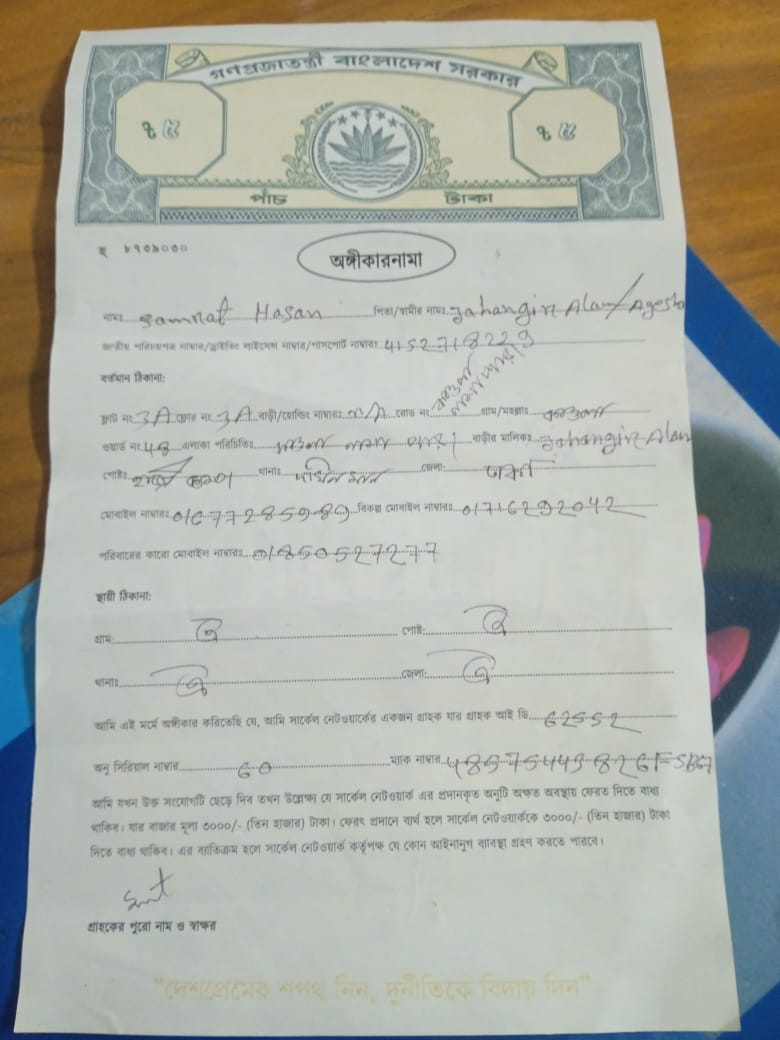 গণপ্রজাতন্ত্রী বাংলাদেশ সরকার
৳ ৫ ৳ ৫
পাঁচ টাকা
অঙ্গীকারনামা
নামঃ Samrat Hasan পিতা/স্বামীর নামঃ Jahangir Alam/Ayesha
জাতীয় পরিচয়পত্র নাম্বার/ড্রাইভিং লাইসেন্স নাম্বার/পাসপোর্ট নাম্বারঃ 4152718229
বর্তমান ঠিকানা:
ফ্লাট নং 3A ফ্লোর নং 3A বাড়ী/হোল্ডিং নাম্বারঃ N/A রোড নং গ্রাম/মহল্লাঃ কাওলা
ওয়ার্ড নং 48 এলাকা পরিচিতিঃ কাওলা বাড়ীর মালিকঃ Jahangir Alam
পোষ্টঃ থানাঃ দক্ষিনখান জেলা: ঢাকা
মোবাইল নাম্বারঃ 01677285989 বিকল্প মোবাইল নাম্বারঃ 01716292042
পরিবারের কারো মোবাইল নাম্বারঃ 01850527277
স্থায়ী ঠিকানা:
গ্রাম: ঐ পোষ্ট: ঐ
থানাঃ ঐ জেলা: ঐ
আমি এই মর্মে অঙ্গীকার করিতেছি যে, আমি সার্কেল নেটওয়ার্কের একজন গ্রাহক যার গ্রাহক আই ডি 62552
অনু সিরিয়াল নাম্বার 60 ম্যাক নাম্বার
আমি যখন উক্ত সংযোগটি ছেড়ে দিব তখন উল্লেক্ষ্য যে সার্কেল নেটওয়ার্ক এর প্রদানকৃত অনুটি অক্ষত অবস্থায় ফেরত দিতে বাধ্য
থাকিব। যার বাজার মূল্য ৩০০০/- (তিন হাজার) টাকা। ফেরৎ প্রদানে ব্যর্থ হলে সার্কেল নেটওয়ার্ককে ৩০০০/- (তিন হাজার) টাকা
দিতে বাধ্য থাকিব। এর ব্যতিক্রম হলে সার্কেল নেটওয়ার্ক কর্তৃপক্ষ যে কোন আইনানুগ ব্যবস্থা গ্রহণ করতে পারবে।
গ্রাহকের পুরো নাম ও স্বাক্ষর
"দেশপ্রেমের শপথ নিন, দুর্নীতিকে বিদায় দিন"